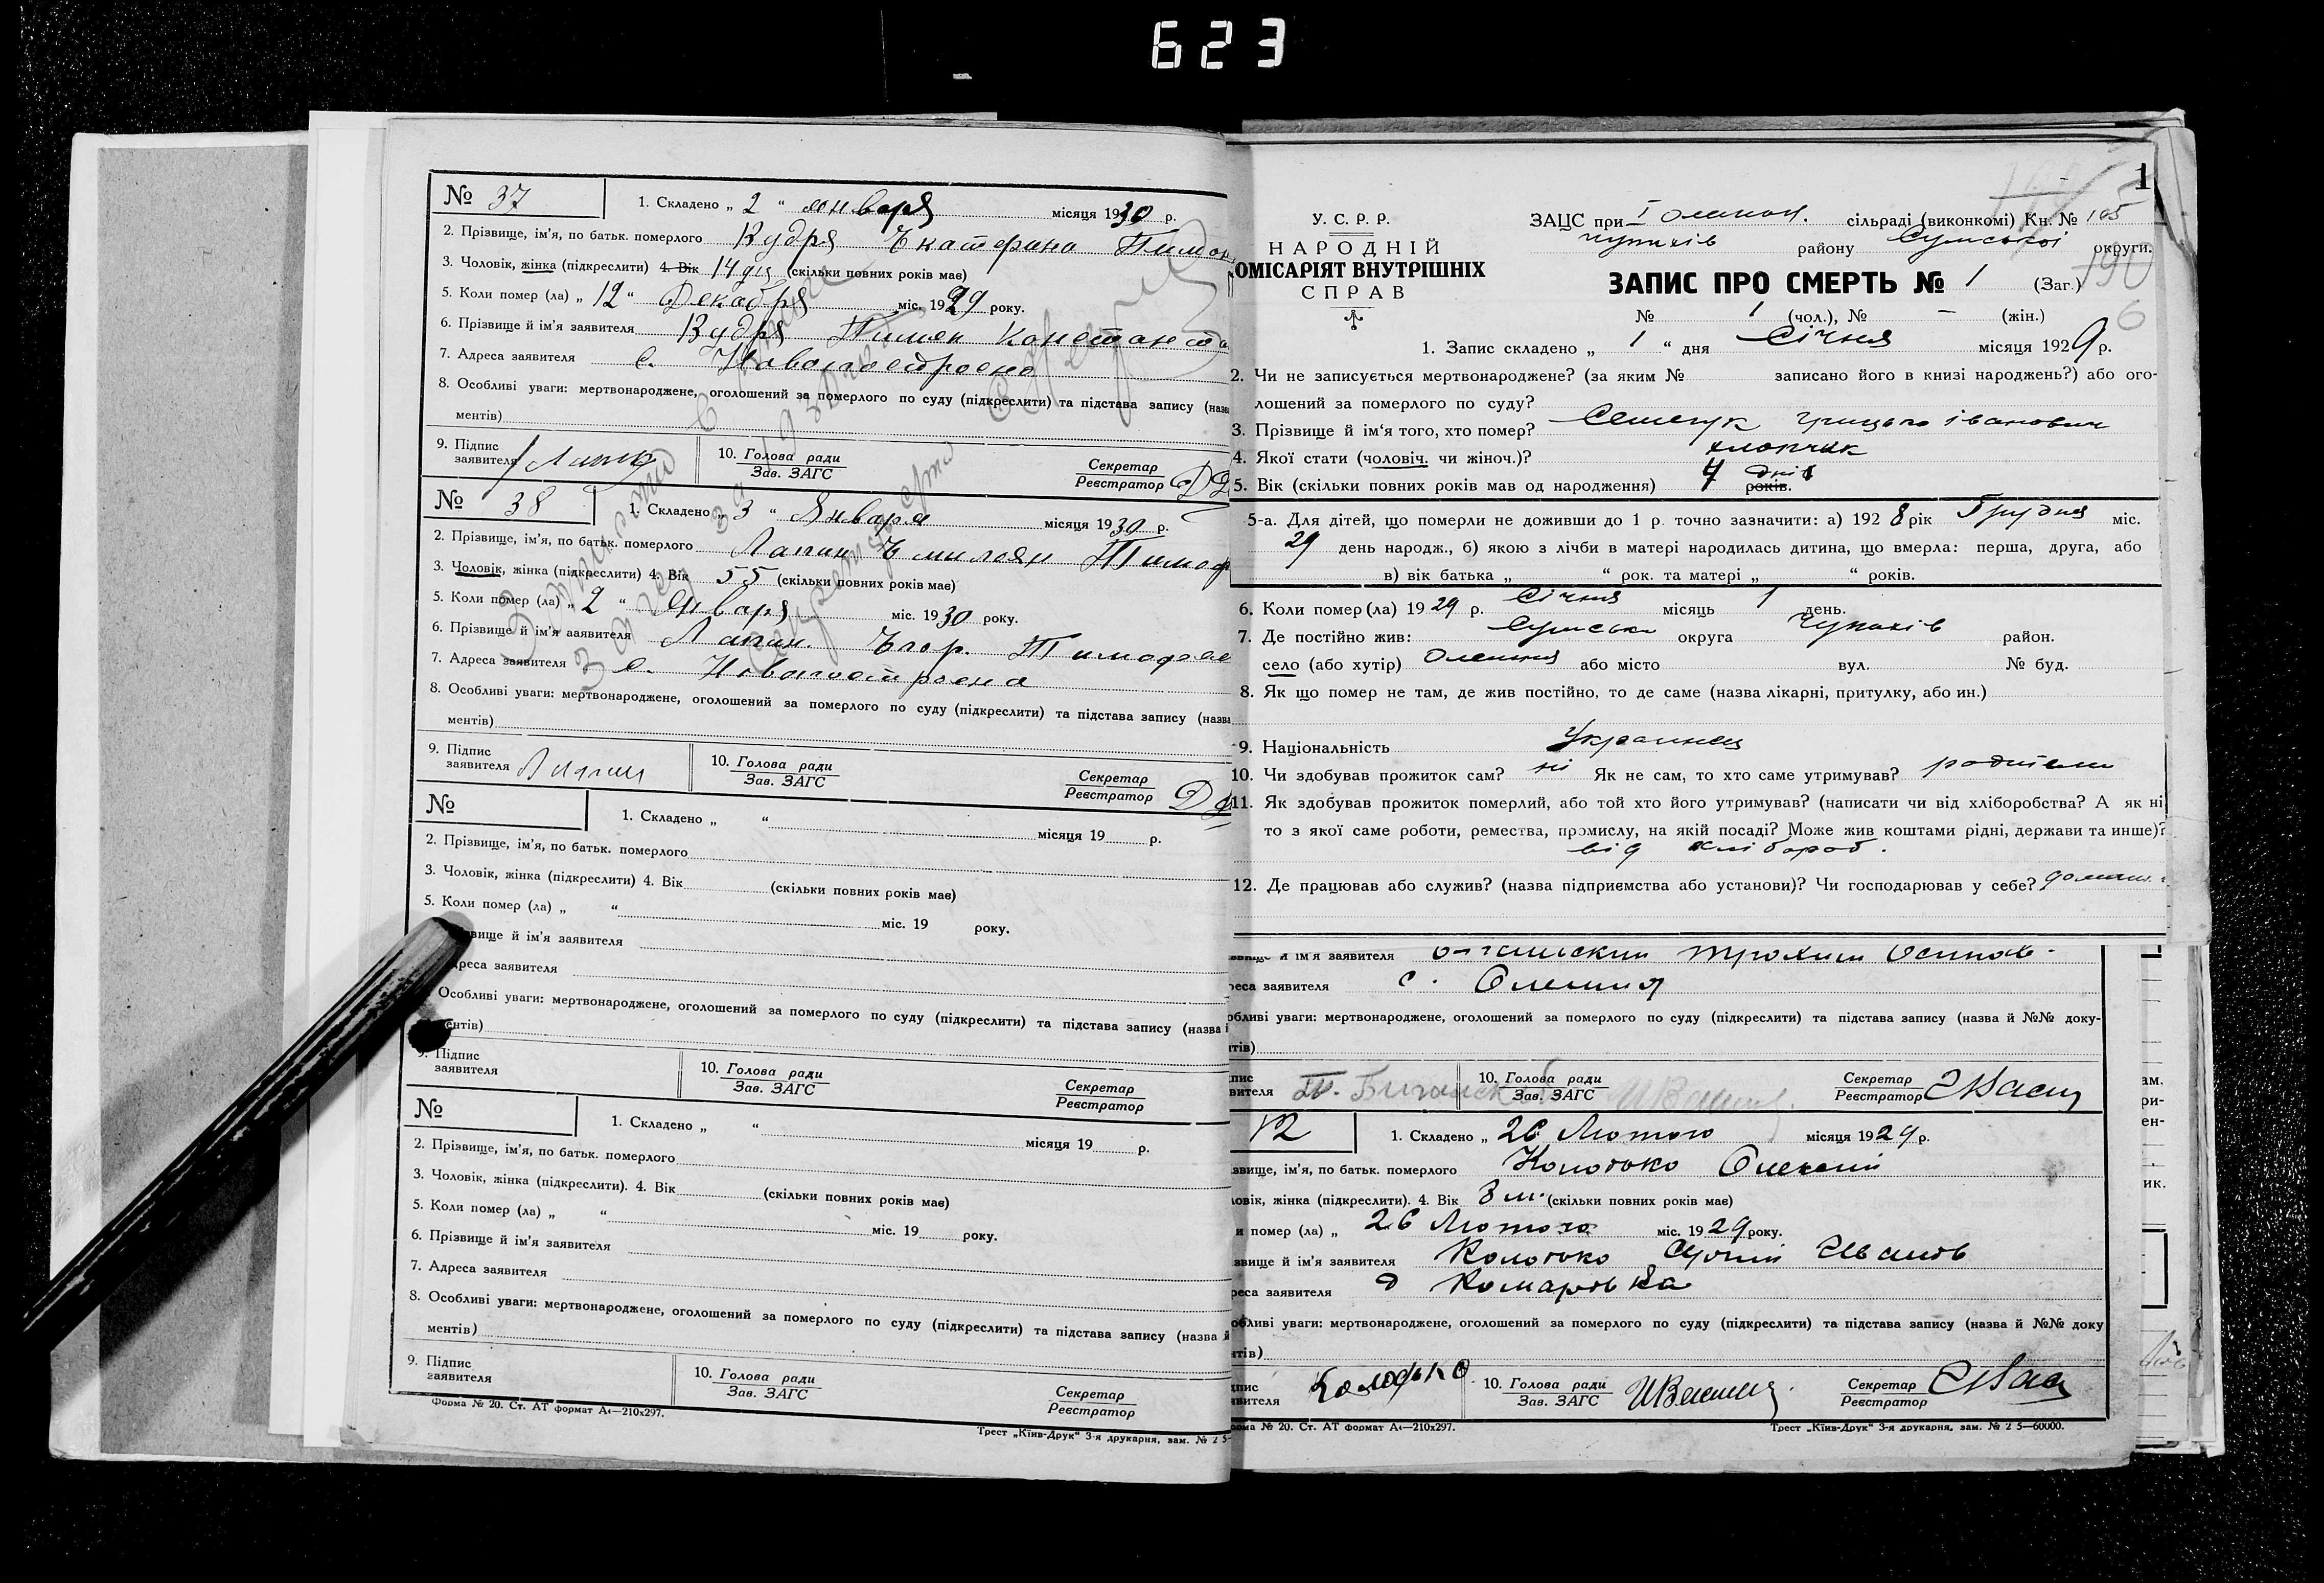 623
№ 37
1. Складено „ 2 “ января місяця 1930 р.
2. Прізвище, ім'я, по батьк. померлого Кудря Екатерина
3. Чоловік, жінка (підкреслити) 4. Вік 14 (скільки повних років має)
5. Коли помер (ла) „ 12 “ Декабря міс. 1929 року.
6. Прізвище й ім'я заявителя Кудря Пимен
7. Адреса заявителя с.
8. Особливі уваги: мертвонароджене, оголошений за померлого по суду (підкреслити) та підстава запису (назва
ментів)
9. Підпис заявителя
10. Голова ради
Зав. ЗАГС
Секретар
Реєстратор
№ 38
1. Складено „ 3 “ Января місяця 1930 р.
2. Прізвище, ім'я, по батьк. померлого Лапин Емилоян
3. Чоловік, жінка (підкреслити) 4. Вік 55 (скільки повних років має)
5. Коли помер (ла) „ 2 “ Января міс. 1930 року.
6. Прізвище й ім'я заявителя Лапин. Егор.
7. Адреса заявителя с.
8. Особливі уваги: мертвонароджене, оголошений за померлого по суду (підкреслити) та підстава запису (назва
ментів)
9. Підпис заявителя
10. Голова ради
Зав. ЗАГС
Секретар
Реєстратор
№
1. Складено „ “ місяця 19 р.
2. Прізвище, ім'я, по батьк. померлого
3. Чоловік, жінка (підкреслити) 4. Вік (скільки повних років має)
5. Коли помер (ла) „ “ міс. 19 року.
вище й ім'я заявителя
дреса заявителя
Особливі уваги: мертвонароджене, оголошений за померлого по суду (підкреслити) та підстава запису (назва й
ентів)
9. Підпис заявителя
10. Голова ради
Зав. ЗАГС
Секретар
Реєстратор
№
1. Складено „ “ місяця 19 р.
2. Прізвище, ім'я, по батьк. померлого
3. Чоловік, жінка (підкреслити). 4. Вік (скільки повних років має)
5. Коли помер (ла) „ “ міс. 19 року.
6. Прізвище й ім'я заявителя
7. Адреса заявителя
8. Особливі уваги: мертвонароджене, оголошений за померлого по суду (підкреслити) та підстава запису (назва й
ментів)
9. Підпис заявителя
10. Голова ради
Зав. ЗАГС
Секретар
Реєстратор
Форма № 20. Ст. АТ формат А4—210х297.
Трест „Київ-Друк“ 3-я друкарня, зам. № 2 5-
1
У. С. Р. Р.
НАРОДНІЙ
ОМІСАРІЯТ ВНУТРІШНІХ
СПРАВ
ЗАЦС при сільраді (виконкомі) Кн. № 105
району Сумської округи.
ЗАПИС ПРО СМЕРТЬ № 1 (Заг.)
190
6
№ 1 (чол.), № – (жін.)
1. Запис складено „ 1 “ дня Січня місяця 1929 р.
2. Чи не записується мертвонароджене? (за яким № записано його в книзі народжень?) або ого-
лошений за померлого по суду?
3. Прізвище й ім'я того, хто помер? Грицько Іванович
4. Якої стати (чоловіч. чи жіноч.)? хлопчик
5. Вік (скільки повних років мав од народження) 4 днів років.
5-а. Для дітей, що померли не доживши до 1 р. точно зазначити: а) 1928 рік Грудня міс.
29 день народж., б) якою з лічби в матері народилась дитина, що вмерла: перша, друга, або
в) вік батька „ “ рок. та матері „ “ років.
6. Коли помер (ла) 1929 р. Січня місяць 1 день.
7. Де постійно жив: Сумська округа Чупахів район.
село (або хутір) Олешня або місто вул. № буд.
8. Як що помер не там, де жив постійно, то де саме (назва лікарні, притулку, або ин.)
9. Національність Украинец
10. Чи здобував прожиток сам? ні Як не сам, то хто саме утримував? родители
11. Як здобував прожиток померлий, або той хто його утримував? (написати чи від хліборобства? А як ні
то з якої саме роботи, ремества, промислу, на якій посаді? Може жив коштами рідні, держави та инше)?
від хлібороб.
12. Де працював або служив? (назва підприємства або установи)? Чи господарював у себе?
ім'я заявителя Трохим Осипов.
реса заявителя с. Олешня
обливі уваги: мертвонароджене, оголошений за померлого по суду (підкреслити) та підстава запису (назва й №№ доку-
тів)
пис
вителя
10. Голова ради
Зав. ЗАГС
Секретар
Реєстратор
12
1. Складено „ 26 Лютого місяця 1929 р.
звище, ім'я, по батьк. померлого Колодко Олексій
ловік, жінка (підкреслити). 4. Вік 8 м. (скільки повних років має)
и помер (ла) „ 26 Лютого міс. 1929 року.
звище й ім'я заявителя Колодко Иванов
реса заявителя Комаровка
обливі уваги: мертвонароджене, оголошений за померлого по суду (підкреслити) та підстава запису (назва й №№ доку
тів)
пис
вителя Колодько
10. Голова ради
Зав. ЗАГС
Секретар
Реєстратор
рма № 20. Ст. АТ формат А4—210х297.
Трест „Київ-Друк“ 3-я друкарня, зам. № 2 5—60000.